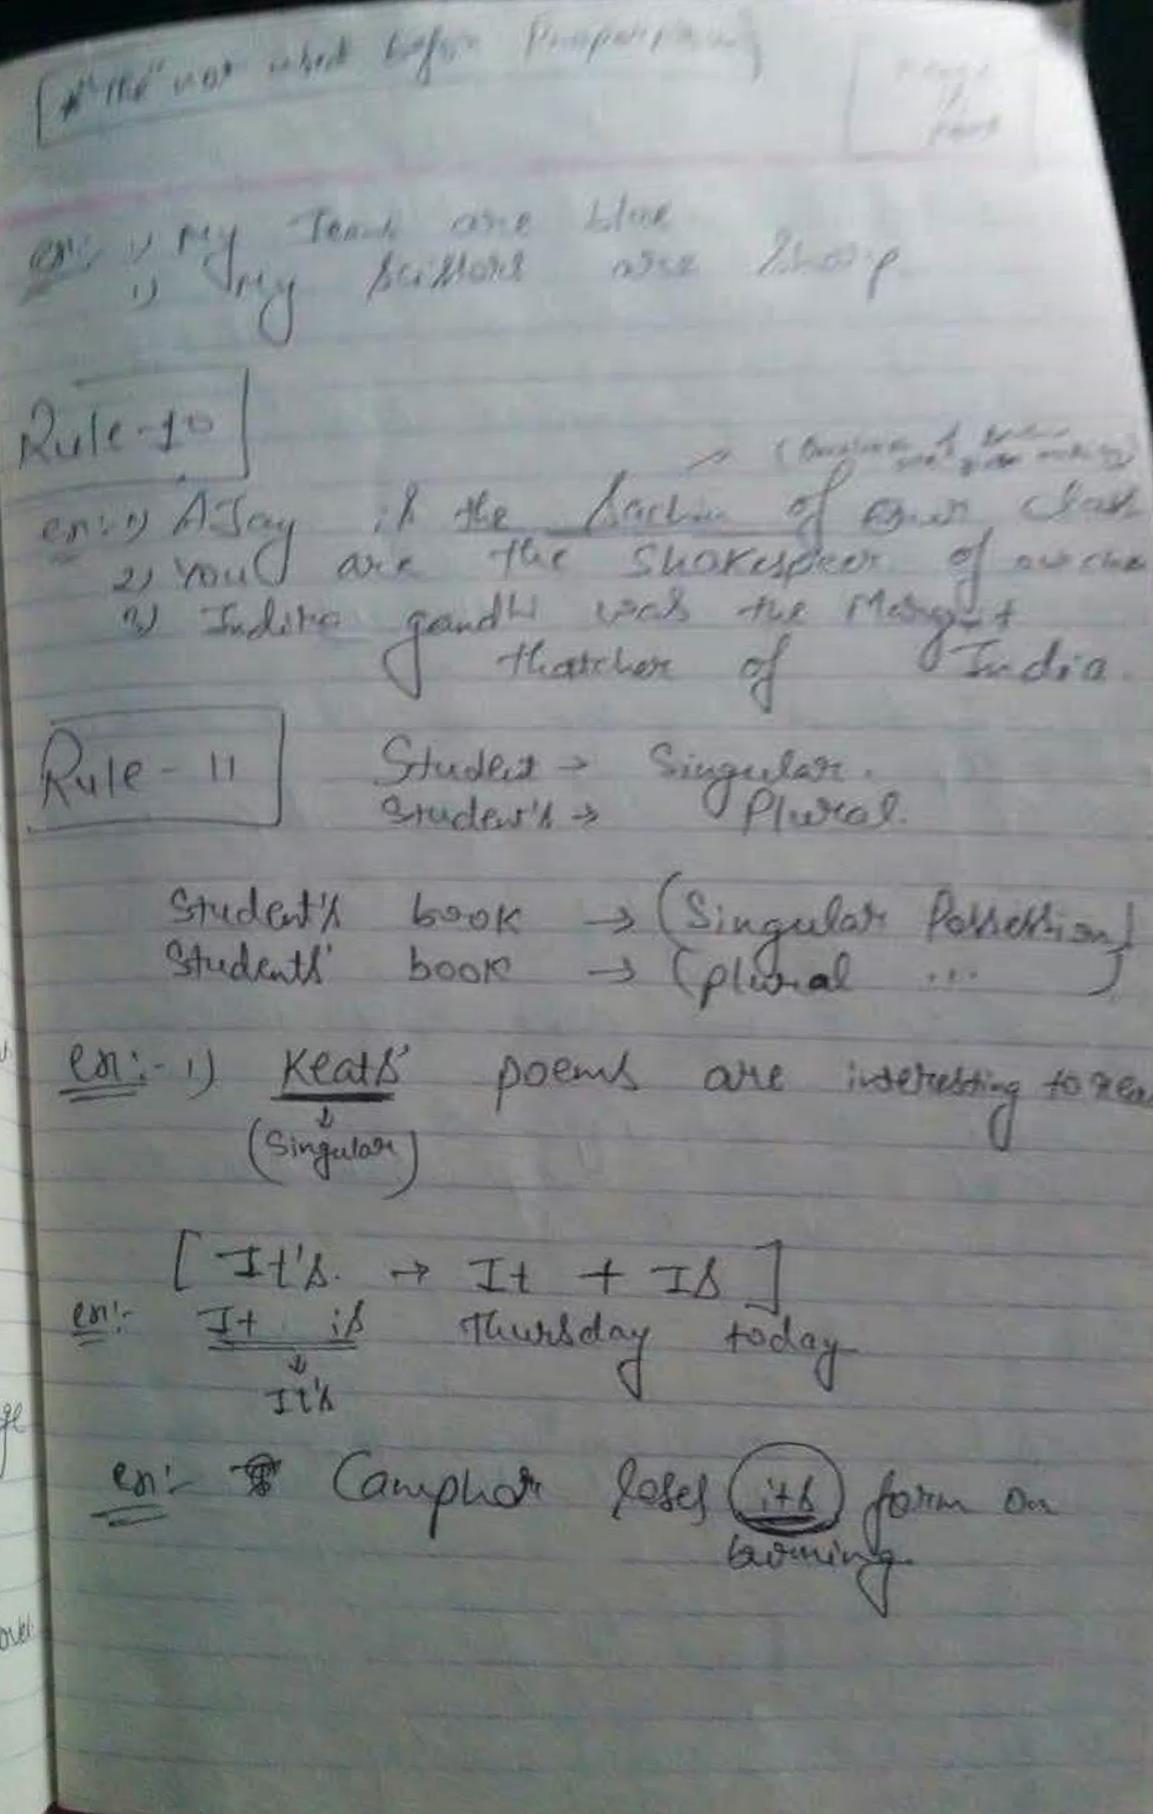 ["The" not used before
ex:- 1) My Jeans are blue
1) My Scissors are Sharp.
Rule-10
ex:- 1) AJay is the Sachin of our Class
2) You are the Shakespeer of our class
3) Indira gandhi was the Margret
thatcher of India.
Rule - 11
Student → Singular.
Student's → Plural.
Student's book → (Singular Possession)
Students' book → (plural ... )
ex:- 1) Keats' poems are interesting to
(Singular)
[ It's. → It + Is ]
ex:- It is Thursday today
It's
ex:- Camphor loses its form on
burning.